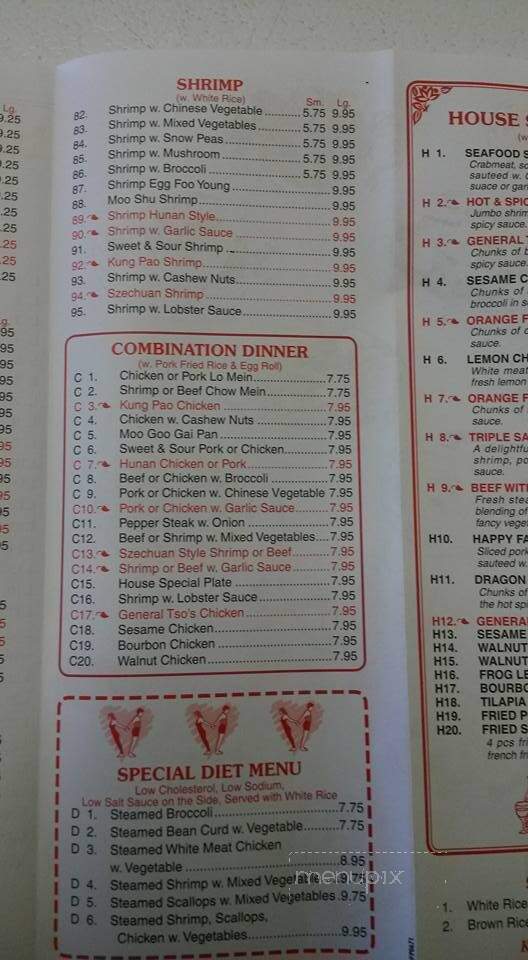 Lg.
9.25
9.25
9.25
9.25
9.25
.25
.25
.25
.25
.25
.25
g.
95
95
95
95
95
95
95
95
95
95
95
95
95
5
SHRIMP
(w. White Rice)
Sm. Lg.
82. Shrimp w. Chinese Vegetable 5.75 9.95
83. Shrimp w. Mixed Vegetables 5.75 9.95
84. Shrimp w. Snow Peas 5.75 9.95
85. Shrimp w. Mushroom 5.75 9.95
86. Shrimp w. Broccoli 5.75 9.95
87. Shrimp Egg Foo Young 9.95
88. Moo Shu Shrimp 9.95
89. Shrimp Hunan Style 9.95
90. Shrimp w. Garlic Sauce 9.95
91. Sweet & Sour Shrimp 9.95
92. Kung Pao Shrimp 9.95
93. Shrimp w. Cashew Nuts 9.95
94. Szechuan Shrimp 9.95
95. Shrimp w. Lobster Sauce 9.95
COMBINATION DINNER
(w. Pork Fried Rice & Egg Roll)
C 1. Chicken or Pork Lo Mein 7.75
C 2. Shrimp or Beef Chow Mein 7.75
C 3. Kung Pao Chicken 7.95
C 4. Chicken w. Cashew Nuts 7.95
C 5. Moo Goo Gai Pan 7.95
C 6. Sweet & Sour Pork or Chicken 7.95
C 7. Hunan Chicken or Pork 7.95
C 8. Beef or Chicken w. Broccoli 7.95
C 9. Pork or Chicken w. Chinese Vegetable 7.95
C10. Pork or Chicken w. Garlic Sauce 7.95
C11. Pepper Steak w. Onion 7.95
C12. Beef or Shrimp w. Mixed Vegetables 7.95
C13. Szechuan Style Shrimp or Beef 7.95
C14. Shrimp or Beef w. Garlic Sauce 7.95
C15. House Special Plate 7.95
C16. Shrimp w. Lobster Sauce 7.95
C17. General Tso's Chicken 7.95
C18. Sesame Chicken 7.95
C19. Bourbon Chicken 7.95
C20. Walnut Chicken 7.95
SPECIAL DIET MENU
Low Cholesterol, Low Sodium,
Low Salt Sauce on the Side, Served with White Rice
D 1. Steamed Broccoli 7.75
D 2. Steamed Bean Curd w. Vegetable 7.75
D 3. Steamed White Meat Chicken
w. Vegetable 8.95
D 4. Steamed Shrimp w. Mixed Vegetable 9.75
D 5. Steamed Scallops w. Mixed Vegetables 9.75
D 6. Steamed Shrimp, Scallops,
Chicken w. Vegetables 9.95
menupix
HOUSE
(w
H 1. SEAFOOD
Crabmeat, sc
sauteed w.
suace or gar
H 2. HOT & SPIC
Jumbo shrim
spicy sauce.
H 3. GENERAL
Chunks of
spicy sauce.
H 4. SESAME C
Chunks of
broccoli in s
H 5. ORANGE F
Chunks of
sauce.
H 6. LEMON CH
White meat
fresh lemon
H 7. ORANGE F
Chunks of
sauce.
H 8. TRIPLE SA
A delightfu
shrimp, po
sauce.
H 9. BEEF WITH
Fresh stea
blending of
fancy veget
H10. HAPPY FA
Sliced pork
sauteed w.
H11. DRAGON
Chunks of
the hot spi
H12. GENERAL
H13. SESAME
H14. WALNUT
H15. WALNUT
H16. FROG LE
H17. BOURBO
H18. TILAPIA
H19. FRIED P
H20. FRIED S
4 pcs fri
french fri
1. White Rice
2. Brown Rice